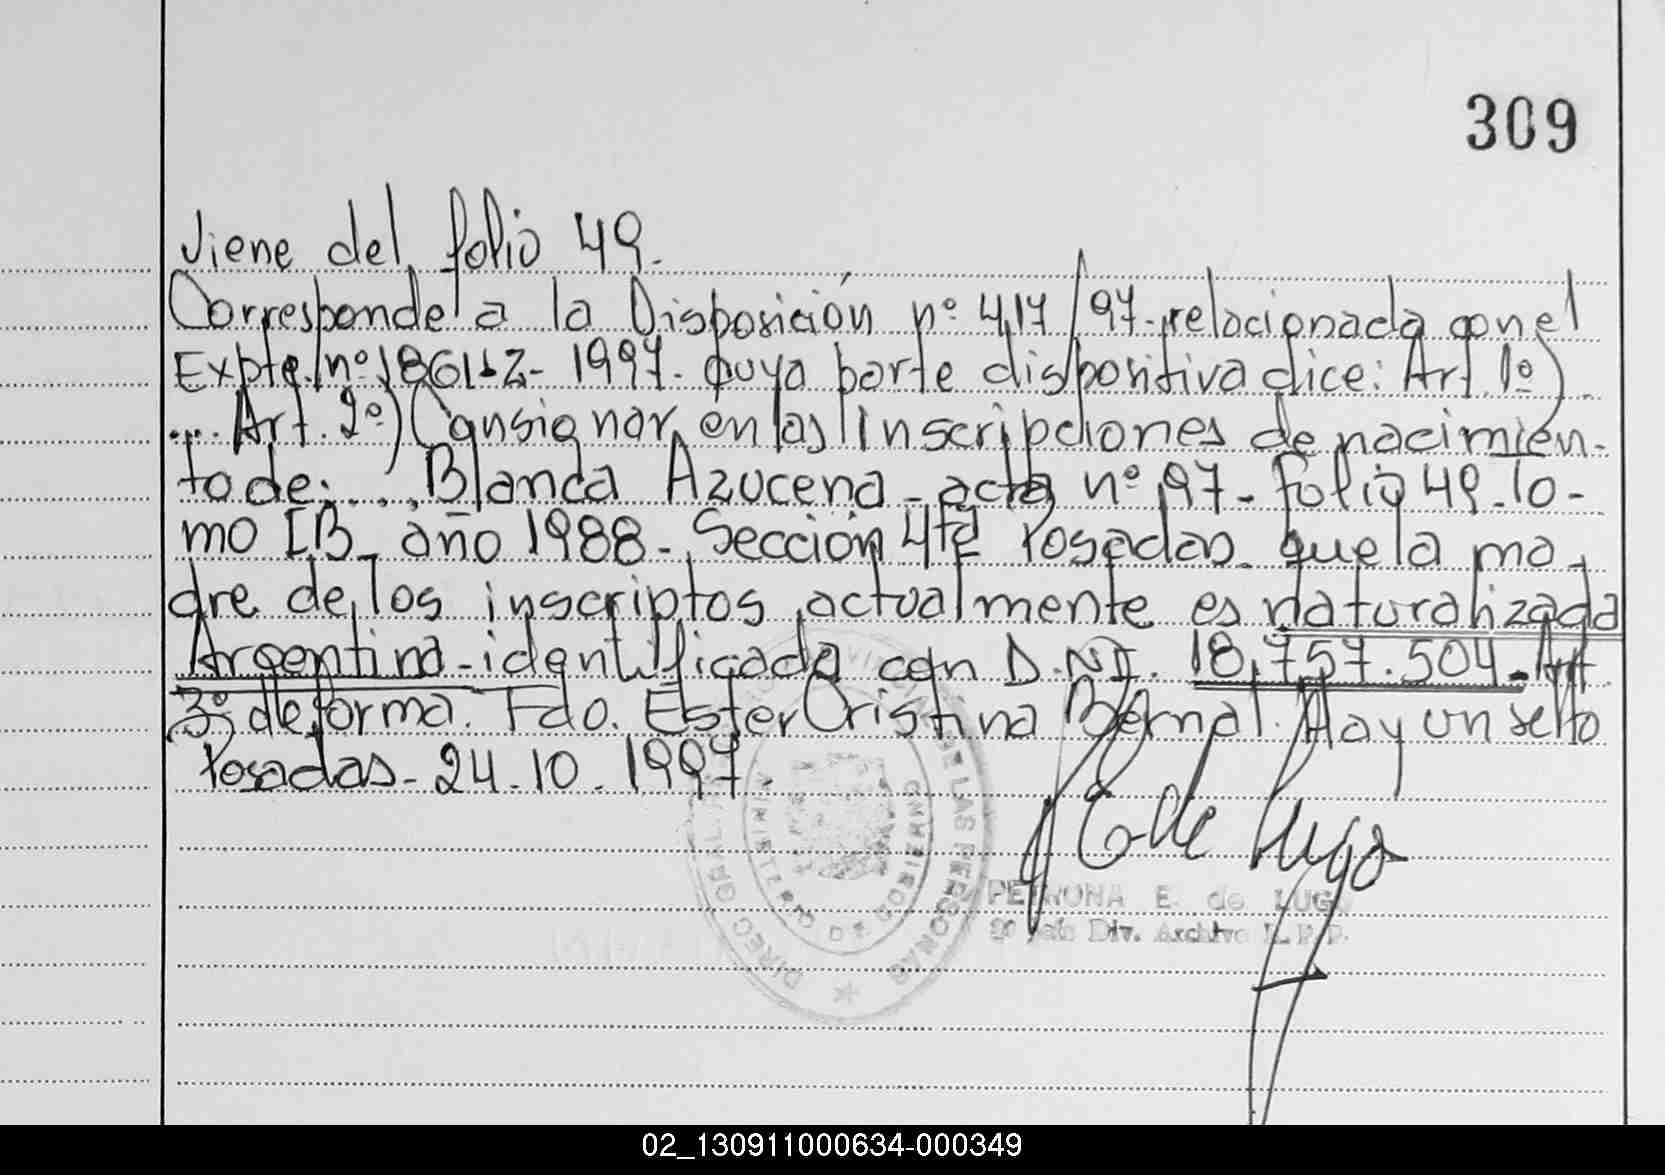 309
Viene del folio 49.
Corresponde a la Disposición nº 417/97-relacionada con el
Expte. nº 1861-Z-1997-cuya parte dispositiva dice: Art. 1º)
.... Art. 2º) Consignar en las Inscripciones de nacimien-
to de: .... Blanca Azucena-acta nº 97-folio 49-To-
mo IB-año 1988-Sección 4ta Posadas-que la ma-
dre de los inscriptos actualmente es naturalizada
Argentina-identificada con D.NI. 18.757.504-Art
3º) de forma. Fdo. Ester Cristina Bernal. Hay un sello
Posadas-24.10.1997.
E de Lugo
PETRONA E. de LUGO
Div. Archivo
DIREC. GRAL. DE LAS PERSONAS
02_130911000634-000349